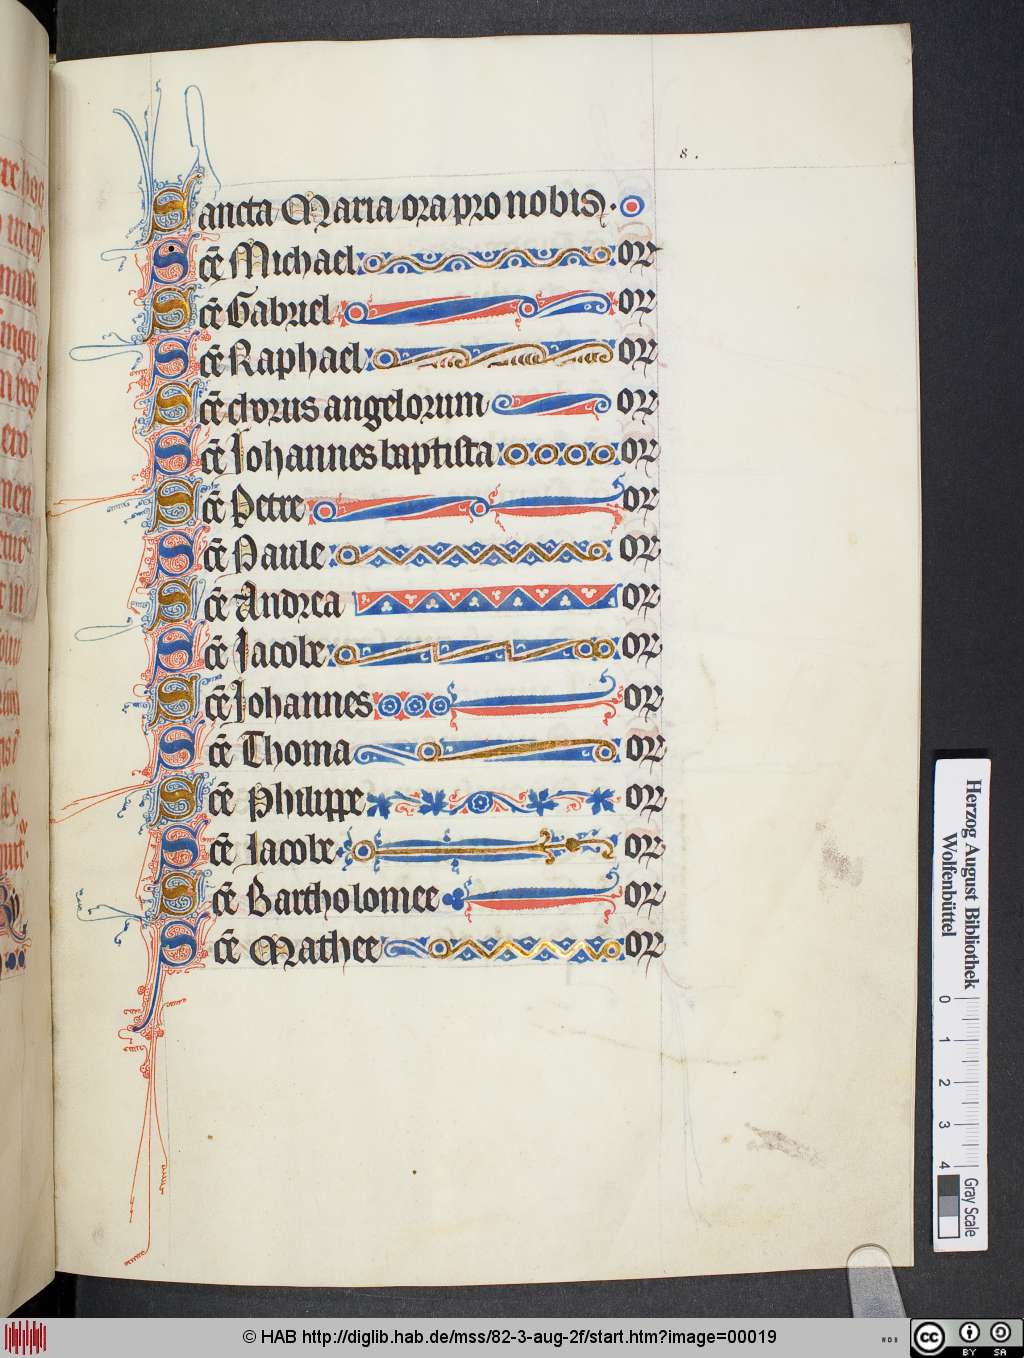 8.
Sancta Maria ora pro nobis.
Scē Michael or
Scē Gabriel or
Scē Raphael or
Scē chorus angelorum or
Scē Iohannes baptista or
Scē Petre or
Scē Paule or
Scē Andrea or
Scē Iacobe or
Scē Iohannes or
Scē Thoma or
Scē Philippe or
Scē Iacobe or
Scē Bartholomee or
Scē Mathee or
Herzog August Bibliothek
Wolfenbüttel
0 1 2 3 4
Gray Scale
© HAB http://diglib.hab.de/mss/82-3-aug-2f/start.htm?image=00019
WDB
cc BY SA